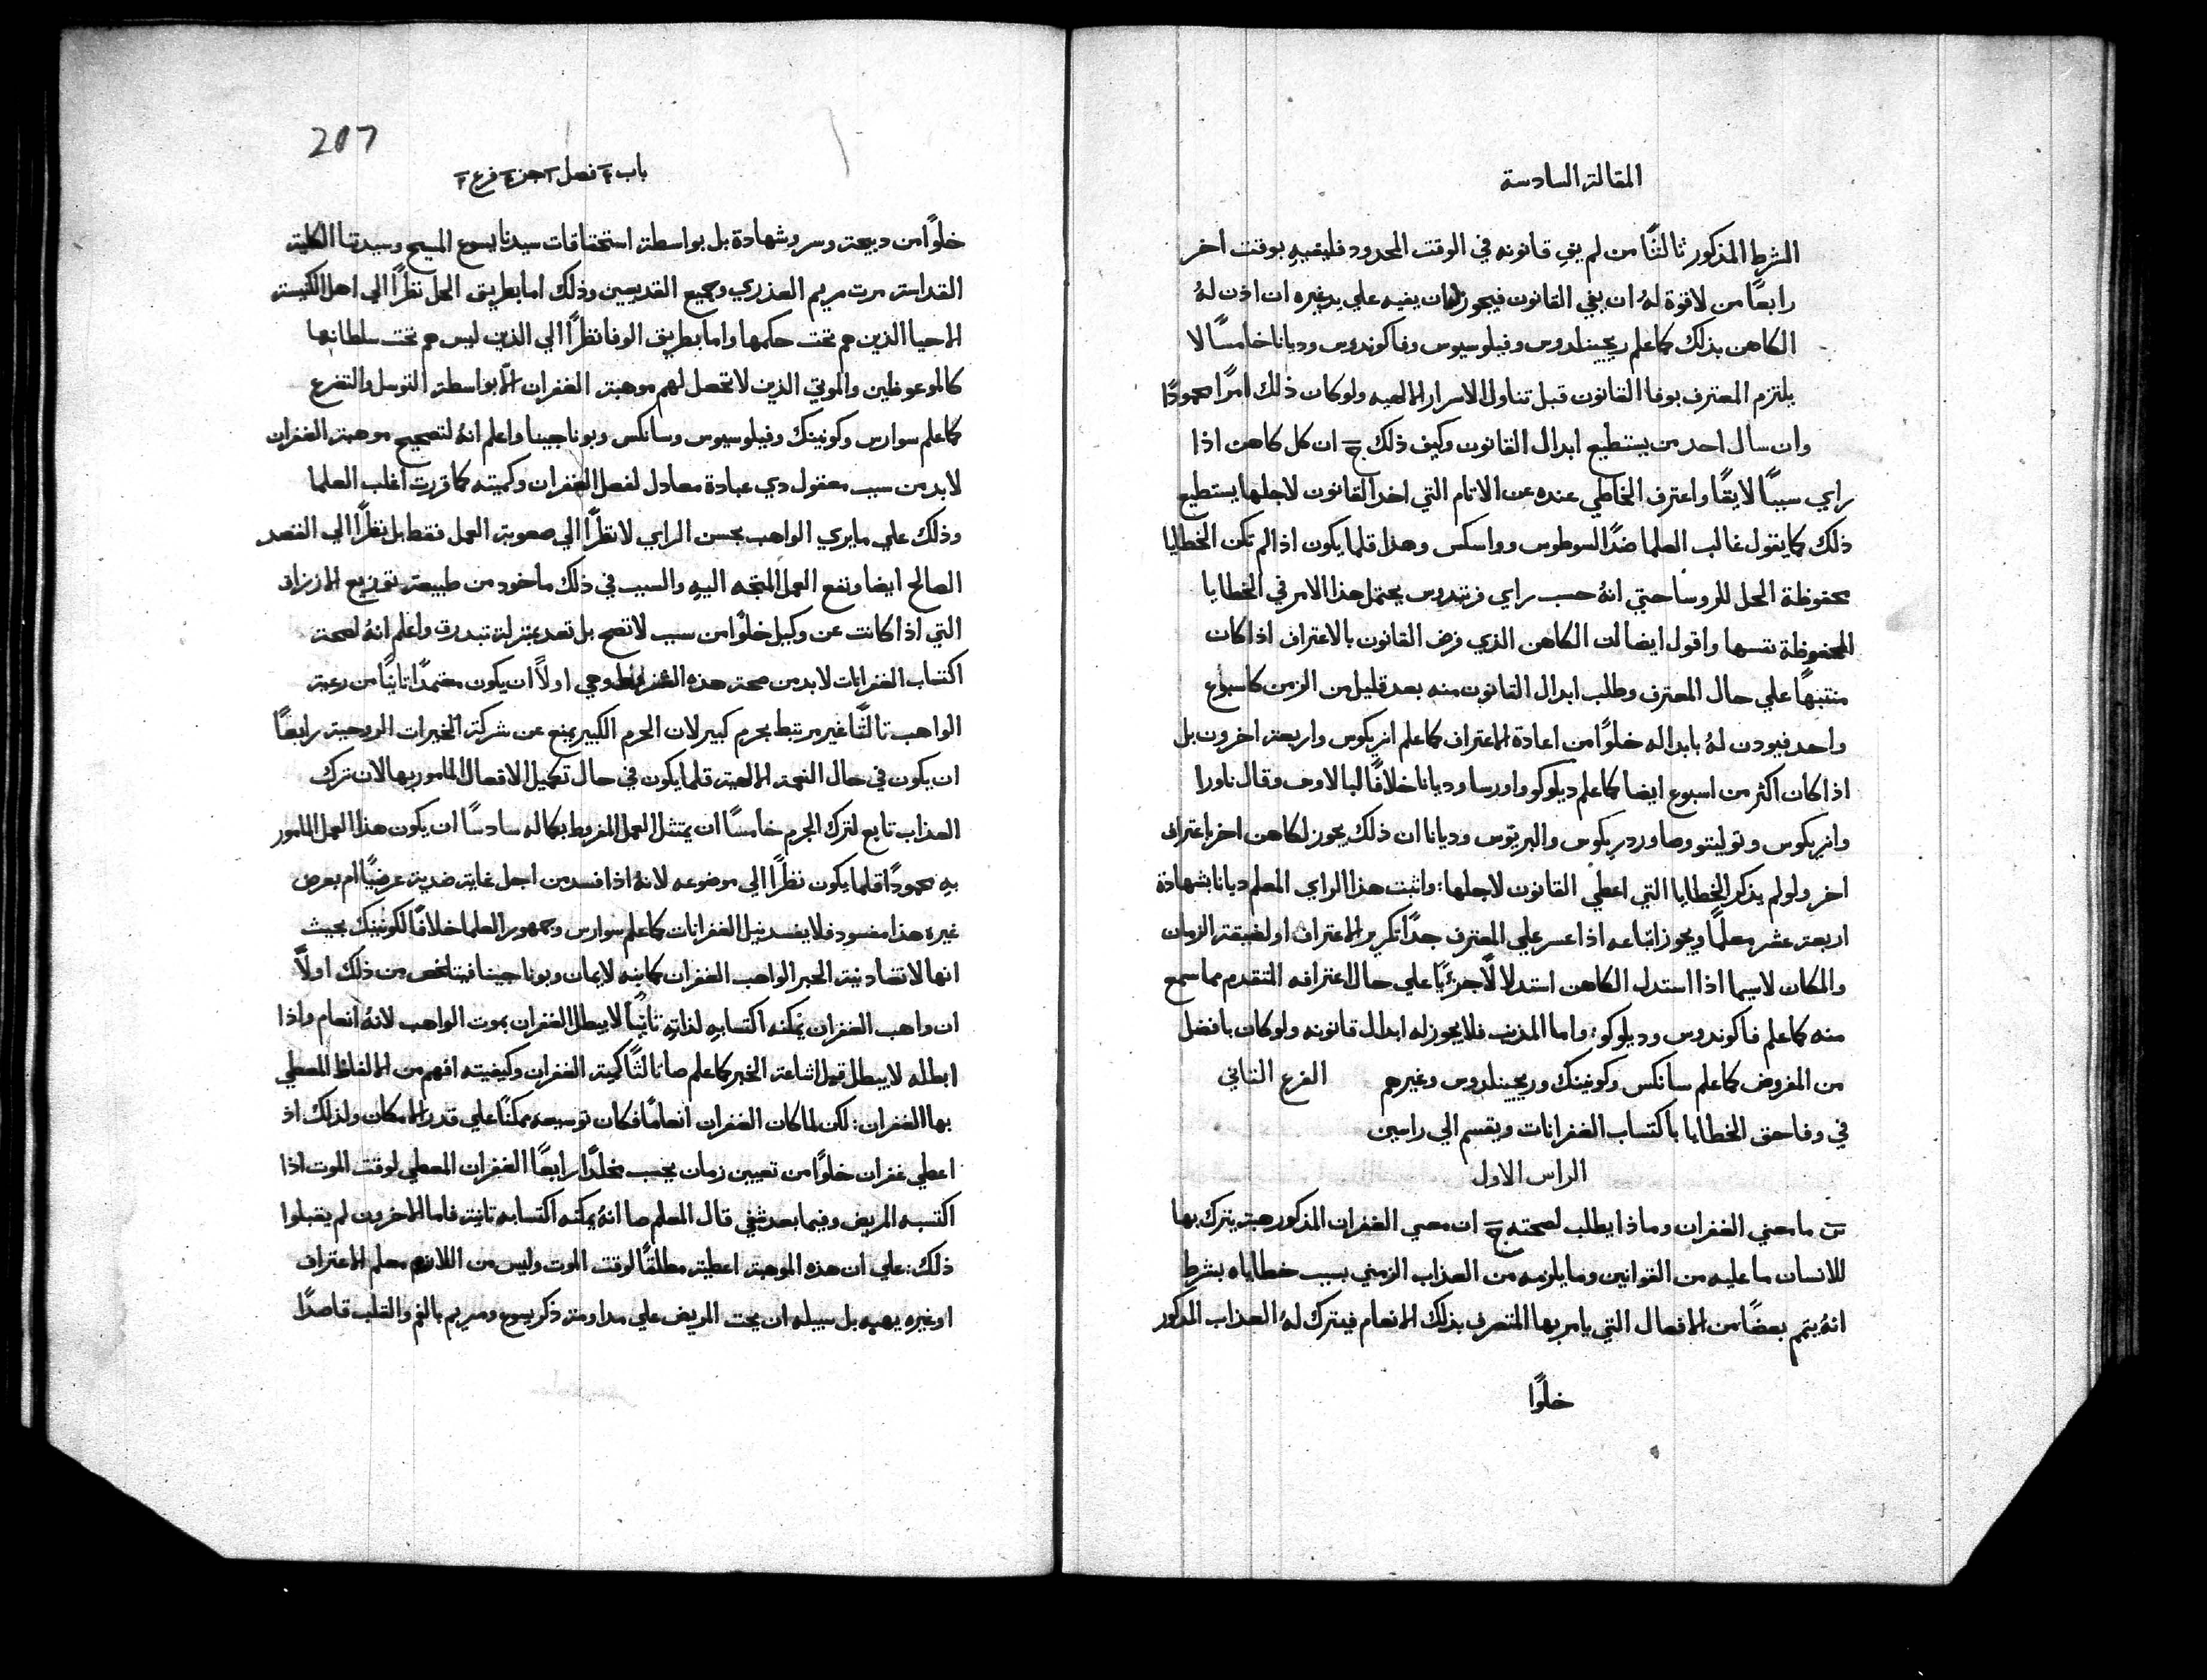 المقالة السادسة
الشرط المذكور ثالثًا من لم يفِ قانونه في الوقت المحدود فليفيهِ بوقت اخر
رابعًا من لا قوة لهُ ان يفي القانون فيجوز له ان يفيه علي يد غيره ان اذن لهُ
الكاهن بذلك كما علم ريجينلدوس وفيلوسيوس وفاكوندوس وديانا خامسًا لا
يلتزم المعترف بوفا القانون قبل تناول الاسرار الالهيه ولو كان ذلك امرًا محمودًا
وان سال احد من يستطيع ابدال القانون وكيف ذلك ج ان كل كاهن اذا
راي سببًا لايقًا واعترف الخاطي عنده عن الاثام التي اخد القانون لاجلها يستطيع
ذلك كما يقول غالب العلما ضدًا لسوطوس وواسكس وهذا قلما يكون اذا لم تكن الخطايا
محفوظة الحل للروسا حتي انهُ حسب راي فرنندوس يحتمل هذا الامر في الخطايا
المحفوظة نفسها واقول ايضا ان الكاهن الذي فرض القانون بالاعتراف اذا كان
منتبهًا علي حال المعترف وطلب ابدال القانون منه بعد قليل من الزمن كاسبوع
واحد فيودن لهُ بابداله خلوًا من اعادة الاعتراف كما علم انريكوس واربعة اخرون بل
اذا كان اكثر من اسبوع ايضا كما علم ديلوكو واورسا وديانا خلافًا لبالاوس وقال ناورا
وانريكوس وتوليتو وصا ورد ريكوس والبرتوس وديانا ان ذلك يجوز لكاهن اخر باعتراف
اخر ولو لم يذكر الخطايا التي اعطي القانون لاجلها: واثبت هذا الراي المعلم ديانا بشهادة
اربعة عشر معلمًا ويجوز اتباعه اذا عسر علي المعترف جدًا تكرير الاعتراف او لضيقة الزمان
والمكان لاسيما اذا استدل الكاهن استدلالًا جزئيًا علي حال اعترافه المتقدم مما سمع
منه كما علم فاكوندوس وديلوكو: واما المذنب فلا يجوز له ابدال قانونه ولو كان بافضل
من المفروض كما علم سانكس وكونينك وريجينلدوس وغيرهم الفرع الثاني
في وفا حق الخطايا باكتساب الغفرانات ويقسم الي راسين
الراس الاول
س ما معني الغفران وماذا يطلب لصحته ج ان معني الغفران المذكور هبة يترك بها
للانسان ما عليه من القوانين وما يلزمه من العذاب الزمني بسبب خطاياه بشرط
انهُ يتم بعضًا من الافعال التي يامر بها المتصرف بذلك الانعام فيترك لهُ العذاب المذكور
خلوًا
207
باب ٤ فصل ٢ جز ٤ فرع ٢
خلوًا من دبيحة وسر وشهادة بل بواسطة استحقاقات سيدنا يسوع المسيح وسيدتنا الكلية
القداسة مرت مريم العذري وجميع القديسين وذلك اما بطريق الحل نظرًا الي اهل الكنيسة
الاحيا الذين هم تحت حكمها واما بطريق الوفا نظرًا الي الذين ليس هم تحت سلطانها
كالموعوظين والموتي الذين لا تحصل لهم موهبة الغفران الا بواسطة التوسل والتضرع
كما علم سوارس وكونينك وفيلوسيوس وسانكس وبوناجينا واعلم انهُ لتصحيح موهبة الغفران
لابد من سبب معقول دي عبادة معادل لفعل الغفران وكميته كما قررت اغلب العلما
وذلك علي ما يري الواهب بحسن الراي لا نظرًا الي صعوبة العمل فقط بل نظرًا الي القصد
الصالح ايضا ونفع العمل المتجه اليهِ والسبب في ذلك ماخود من طبيعة توزيع الارزاق
التي اذا كانت عن وكيل خلوًا من سبب لا تصح بل تعد بمنزلة تبدرق واعلم انهُ لصحة
اكتساب الغفرانات لابد من صحة هذه الشرايط وهي اولًا ان يكون معتمدًا ثانيًا من رعية
الواهب ثالثًا غير مرتبط بحرم كبير لان الحرم الكبير يمنع عن شركة الخيرات الروحية رابعًا
ان يكون في حال النعمة الالهية قلما يكون في حال تكميل الافعال المامور بها لان ترك
العذاب تابع لترك الجرم خامسًا ان يمتثل العمل المفروض بكماله سادسًا ان يكون هذا العمل المامور
بهِ محمودًا قلما يكون نظرًا الي موضوعه لانهُ اذا فسد من اجل غاية ضدية عرضيًا ام بعرض
غيره هذا مفسود فلا يفسد نيل الغفرانات كما علم سوارس وجمهور العلما خلافًا لكونينك بحيث
انها لا تضاد نية الحبر الواهب الغفران كما بينه لايمان وبوناجينا فيتلخص من ذلك اولًا
ان واهب الغفران يمكنه اكتسابهِ لذاتهِ ثانيًا لا يبطل الغفران بموت الواهب لانهُ انعام واذا
ابطله لا يبطل قبل اشاعة الخبر كما علم صا ثالثًا كمية الغفران وكيفيته افهم من الالفاظ المعطي
بها الغفران: لكن لما كان الغفران انعامًا فكان توسيعه ممكنًا علي قدر الامكان ولذلك اذ
اعطي غفران خلوًا من تعيين زمان يحسب مخلدًا رابعًا الغفران المعطي لوقت الموت اذا
اكتسبه المريض وفيما بعد شفي قال المعلم صا انهُ يمكنه اكتسابه ثانية فاما الاخرون لم يقبلوا
ذلك: علي ان هذه الموهبة اعطيت مطلقًا لوقت الموت وليس من اللازم معلم الاعتراف
او غيره يهبه بل سبيله ان يحث المريض علي مداومة ذكر يسوع ومريم بالفم والقلب قاصدًا